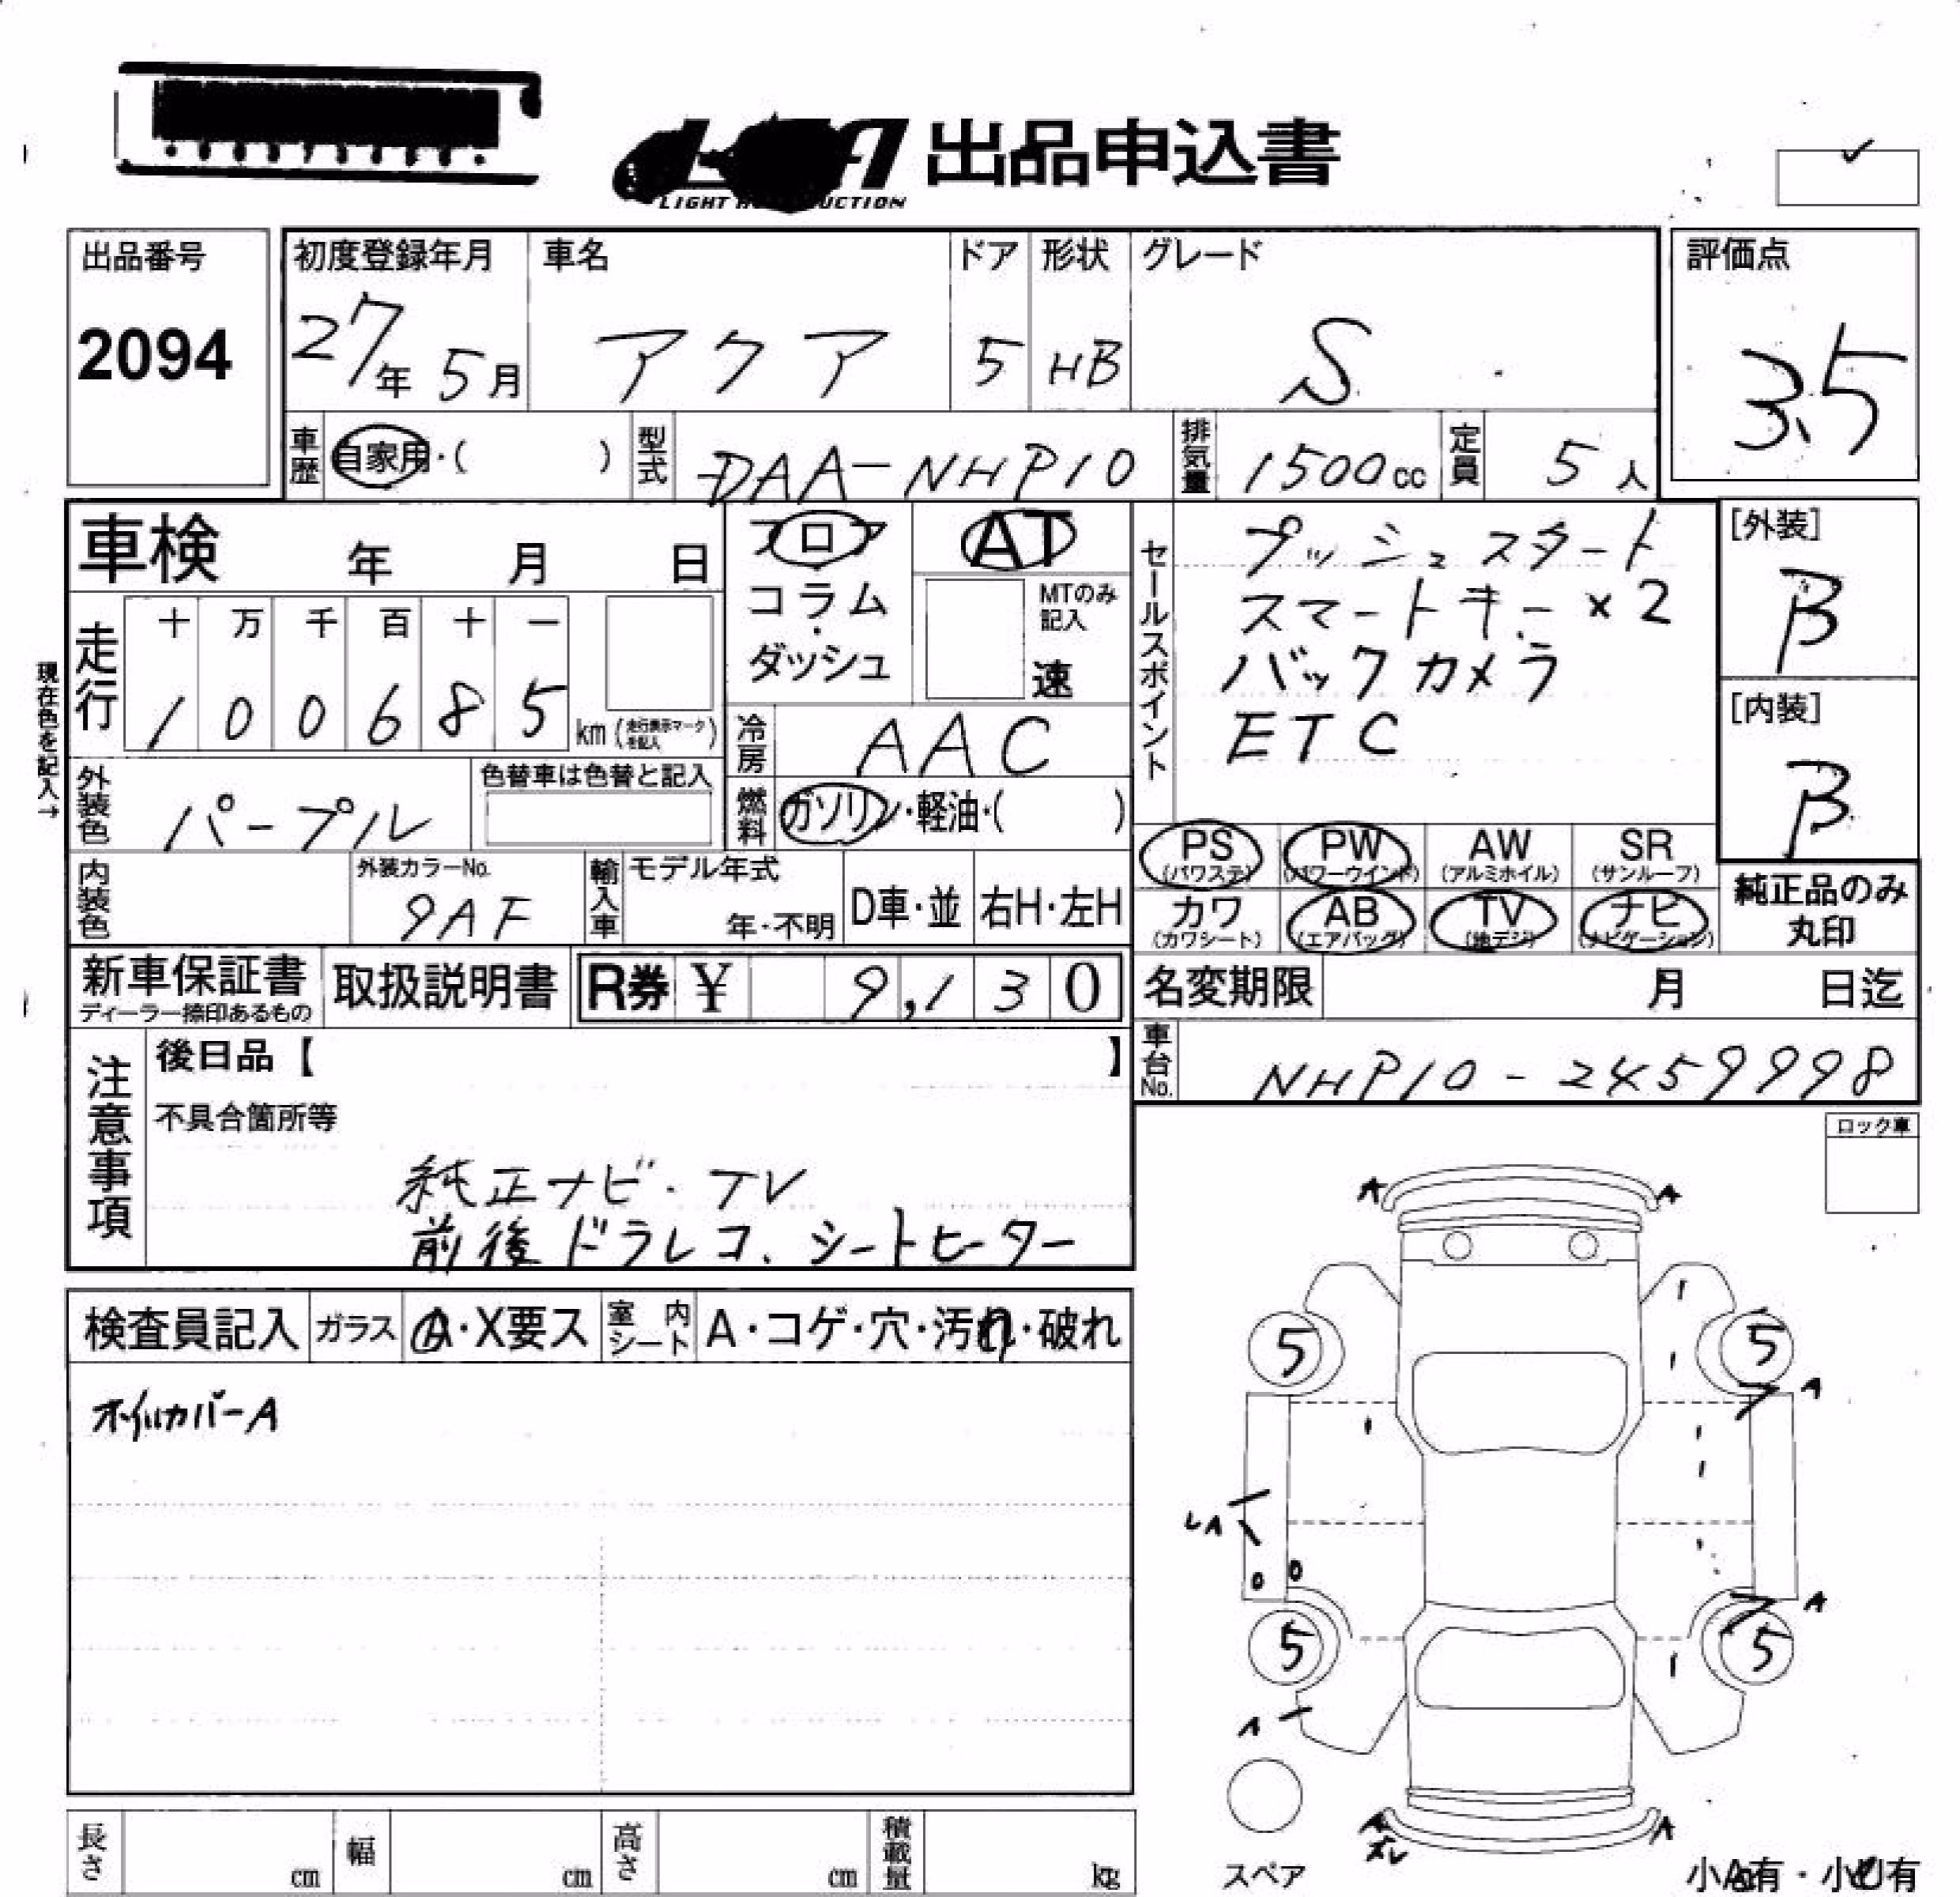 出品申込書
出品番号
2094
初度登録年月
27年 5月
車名
アクア
ドア
5
形状
HB
グレード
S
評価点
3.5
車歴
自家用・( )
型式
DAA-NHP10
排気量
1500cc
定員
5人
車検 年 月 日
フロア
コラム
・
ダッシュ
AT
MTのみ
記入
速
セールスポイント
プッシュスタート
スマートキー×2
バックカメラ
ETC
[外装]
B
[内装]
B
現在色を記入→
走行
十 万 千 百 十 一
1 0 0 6 8 5
km (走行表示マークを記入)
冷房
AAC
外装色
パープル
色替車は色替と記入
燃料
ガソリン・軽油・( )
PS
(パワステ)
PW
(パワーウインド)
AW
(アルミホイル)
SR
(サンルーフ)
カワ
(カワシート)
AB
(エアバッグ)
TV
(地デジ)
ナビ
(ナビゲーション)
純正品のみ
丸印
内装色
外装カラーNo.
9AF
輸入車
モデル年式
年・不明
D車・並
右H・左H
新車保証書
ディーラー捺印あるもの
取扱説明書
R券 ¥ 9,130
名変期限 月 日迄
車台No.
NHP10-2459998
注意事項
後日品【 】
不具合箇所等
純正ナビ・TV
前後ドラレコ、シートヒーター
ロック車
検査員記入
ガラス
A・X要ス
室内シート
A・コゲ・穴・汚れ・破れ
ホイルカバーA
A A
5 5
A
LA
A
5 5
A
A A
スペア
小A有・小U有
長さ cm
幅 cm
高さ cm
積載量 kg